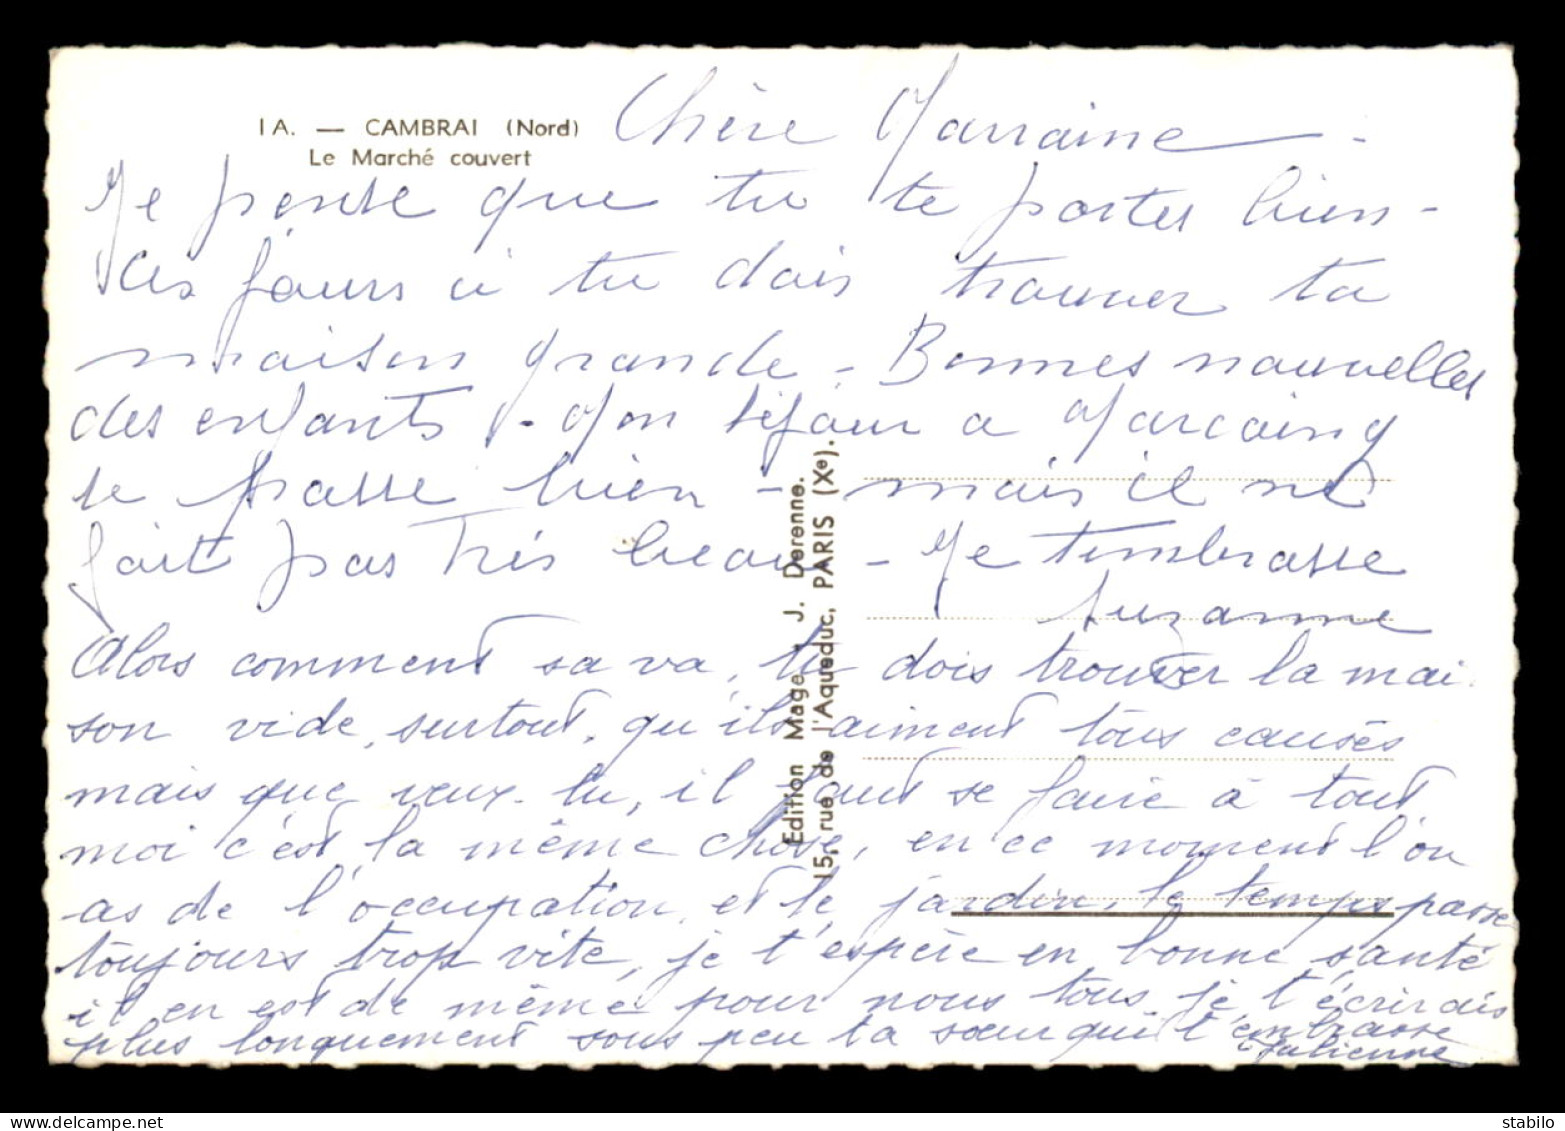 1A. — CAMBRAI (Nord)
Le Marché couvert
Chère Marraine -
Je pense que tu te portes bien -
Ces jours ci tu dois trouver ta
maison grande - Bonnes nouvelles
des enfants - Mon séjour a Marcoing
se passe bien - mais il ne
fait pas très beau - Je t'embrasse
Suzanne
Alors comment sa va, tu dois trouver la mai
son vide, surtout, qu'ils aiment tous causés
mais que veux-tu, il faut se faire à tout
moi c'est la même chose, en ce moment l'on
as de l'occupation, et le jardin, le temps passe
toujours trop vite, je t'espère en bonne santé
il en est de même pour nous tous, je t'écrirais
plus longuement sous peu ta sœur qui t'embrasse
Julienne
Edition Mage, J. Derenne.
15, rue de l'Aqueduc, PARIS (Xe).
stabilo | www.delcampe.net